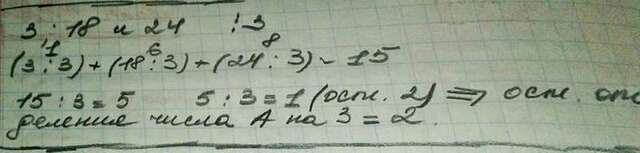 3; 18 и 24 :3
1 6 8
(3:3)+(18:3)+(24:3) = 15
15:3=5 5:3=1 (ост. 2) => ост.
деление числа А на 3 = 2.